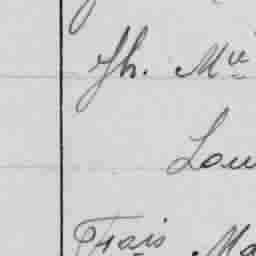 Jh. Mie
Lou
Frais Ma